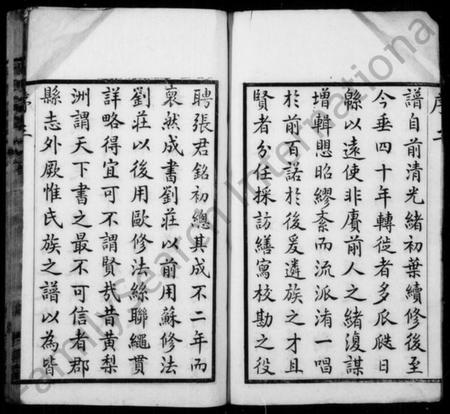 譜自前清光緒初葉續修後至
今垂四十年轉徙者多瓜瓞日
緜以遠使非賡前人之緒復謀
增輯愳昭繆紊而流派淆一唱
於前百諾於後爰遴族之才且
賢者分任採訪繕寫校勘之役
聘張君銘初總其成不二年而
裒然成書劉莊以前用蘇修法
劉莊以後用歐修法絲聯繩貫
詳略得宜可不謂賢哉昔黃梨
洲謂天下書之最不可信者郡
縣志外厥惟氏族之譜以為皆
FamilySearch International